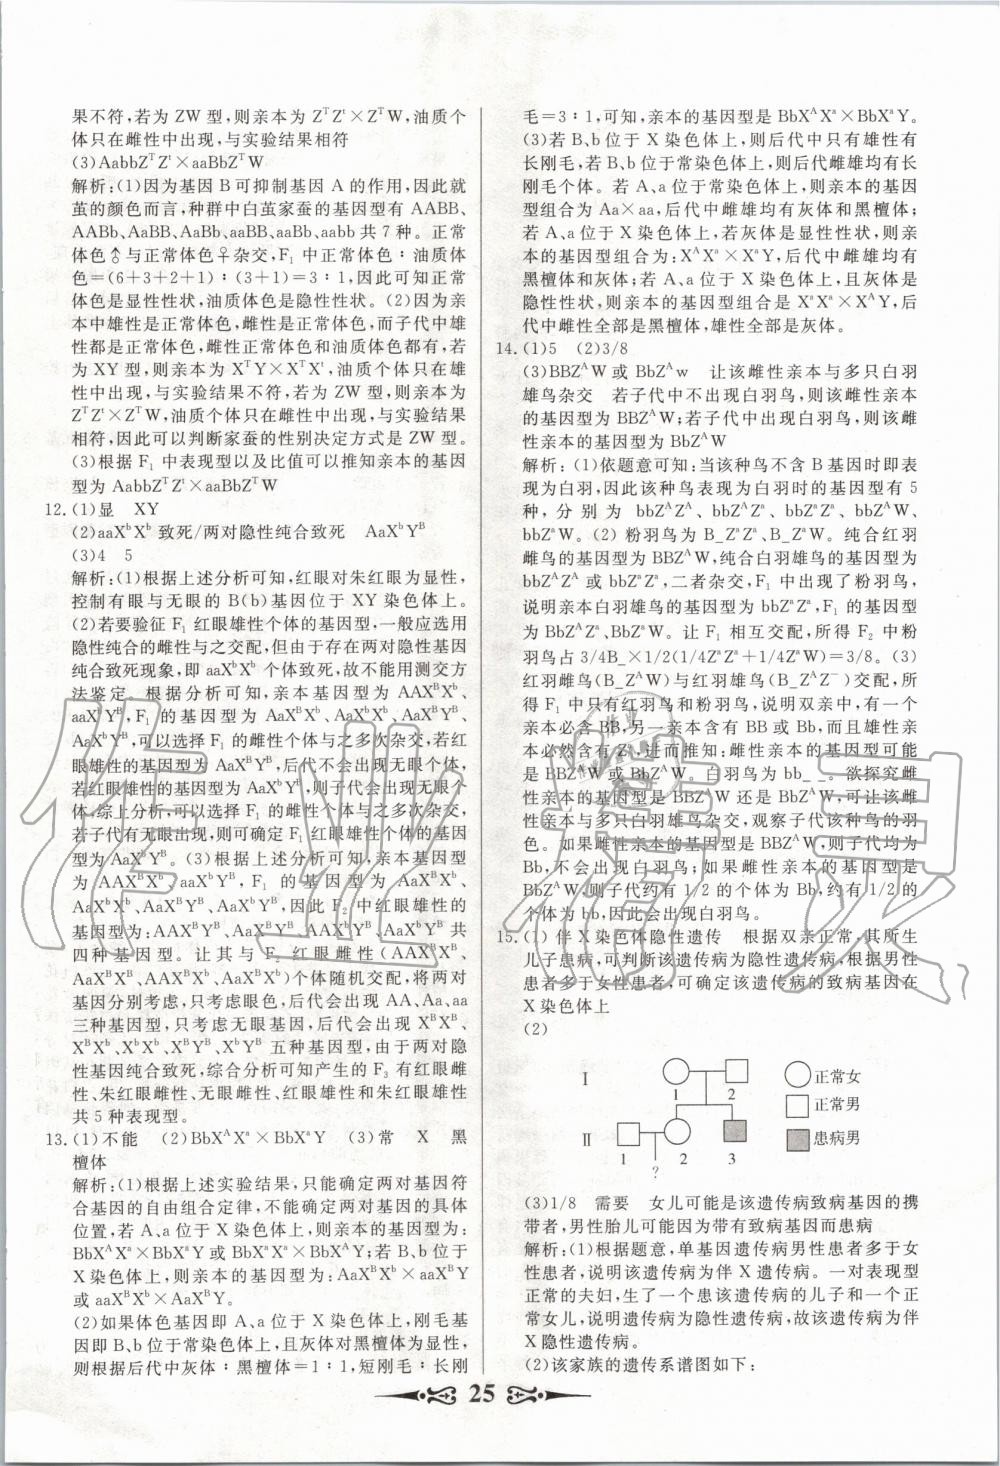 果不符,若为 ZW 型,则亲本为 Z^T Z^t×Z^T W,油质个
体只在雌性中出现,与实验结果相符
(3)AabbZ^T Z^t×aaBbZ^T W
解析:(1)因为基因 B 可抑制基因 A 的作用,因此就
茧的颜色而言,种群中白茧家蚕的基因型有 AABB,
AABb、AaBB、AaBb、aaBB、aaBb、aabb 共 7 种。正常
体色♂与正常体色♀杂交,F₁ 中正常体色∶油质体
色=(6+3+2+1)∶(3+1)=3∶1,因此可知正常
体色是显性性状,油质体色是隐性性状。(2)因为亲
本中雄性是正常体色,雌性是正常体色,而子代中雄
性都是正常体色,雌性有正常体色,有油质体色,若
为 XY 型,则亲本为 X^T Y×X^T X^t,油质体色只在雄
性中出现,与实验结果不符,若为 ZW 型,则亲本为
Z^T Z^t×Z^T W,油质个体只在雌性中出现,与实验结果
相符,因此可以判断家蚕的性别决定方式是 ZW 型。
(3)根据 F₁ 中表现型以及比值可以推知亲本的基因
型为 AabbZ^T Z^t×aaBbZ^T W
12.(1)显 XY
(2)aaX^b X^b 致死/两对隐性纯合致死 AaX^b Y^B
(3)4 5
解析:(1)根据上述分析可知,红眼对朱红眼为显性,
控制有眼与无眼的 B(b)基因位于 XY 染色体上。
(2)若要验证 F₁ 红眼雄性个体的基因型,一般应选用
隐性纯合的雌性与之交配,但由于存在两对隐性基因
纯合致死现象,即 aaX^b X^b 个体致死,故不能用测交方
法鉴定。根据分析可知,亲本基因型为 AAX^B X^b、
aaX^b Y^B,F₁ 的基因型为 AaX^B X^b、AaX^b X^b、AaX^B Y^B、
AaX^b Y^B,可以选择 F₁ 的雌性个体与之多次杂交,若红
眼雄性的基因型为 AaX^B Y^B,后代不会出现无眼个体,
若红眼雄性的基因型为 AaX^b Y^B,则子代会出现无眼个
体,综上分析,可以选择 F₁ 的雌性个体与之多次杂交,
若子代有无眼出现,则可确定 F₁ 红眼雄性个体的基因
型为 AaX^b Y^B。(3)根据上述分析可知,亲本基因型
为 AAX^B X^b、aaX^b Y^B,F₁ 的基因型为 AaX^B X^b、
AaX^b X^b、AaX^B Y^B、AaX^b Y^B,因此 F₂ 中红眼雄性的
基因型为:AAX^B Y^B、AAX^b Y^B、AaX^B Y^B、AaX^b Y^B 共
四种基因型。让其与 F₂ 红眼雌性(AAX^B X^b、
AaX^B X^B、AAX^B X^b、AaX^B X^b)个体随机交配,将两对
基因分别考虑,只考虑眼色,后代会出现 AA、Aa、aa
三种基因型,只考虑无眼基因,后代会出现 X^B X^B、
X^B X^b、X^b X^b、X^B Y^B、X^b Y^B 五种基因型,由于两对隐
性基因纯合致死,综合分析可知产生的 F₃ 有红眼雌
性、朱红眼雌性、无眼雌性、红眼雄性和朱红眼雄性
共 5 种表现型。
13.(1)不能 (2)BbX^A X^a×BbX^a Y (3)常 X 黑
檀体
解析:(1)根据上述实验结果,只能确定两对基因符
合基因的自由组合定律,不能确定两对基因的具体
位置,若 A、a 位于 X 染色体上,则亲本的基因型为:
BbX^A X^a×BbX^a Y 或 BbX^a X^a×BbX^A Y;若 B、b 位于
X 染色体上,则亲本的基因型为:AaX^B X^b×aaX^B Y
或 aaX^B X^b×AaX^B Y。
(2)如果体色基因即 A、a 位于 X 染色体上,刚毛基
因即 B、b 位于常染色体上,且灰体对黑檀体为显性,
则根据后代中灰体∶黑檀体=1∶1,短刚毛∶长刚
毛=3∶1,可知,亲本的基因型是 BbX^A X^a×BbX^a Y。
(3)若 B、b 位于 X 染色体上,则后代中只有雄性有
长刚毛,若 B、b 位于常染色体上,则后代雌雄均有长
刚毛个体。若 A、a 位于常染色体上,则亲本的基因
型组合为 Aa×aa,后代中雌雄均有灰体和黑檀体;
若 A、a 位于 X 染色体上,且灰体是显性性状,则亲
本的基因型组合为:X^A X^a×X^a Y,后代中雌雄均有
黑檀体和灰体;若 A、a 位于 X 染色体上,且灰体是
隐性性状,则亲本的基因型组合是 X^a X^a×X^A Y,后
代中雌性全部是黑檀体,雄性全部是灰体。
14.(1)5 (2)3/8
(3)BBZ^A W 或 BbZ^A w 让该雌性亲本与多只白羽
雄鸟杂交 若子代中不出现白羽鸟,则该雌性亲本
的基因型为 BBZ^A W;若子代中出现白羽鸟,则该雌
性亲本的基因型为 BbZ^A W
解析:(1)依题意可知:当该种鸟不含 B 基因时即表
现为白羽,因此该种鸟表现为白羽时的基因型有 5
种,分别为 bbZ^A Z^A、bbZ^A Z^a、bbZ^a Z^a、bbZ^A W、
bbZ^a W。(2)粉羽鸟为 B_Z^a Z^a、B_Z^a W。纯合红羽
雌鸟的基因型为 BBZ^A W,纯合白羽雄鸟的基因型为
bbZ^A Z^A 或 bbZ^a Z^a,二者杂交,F₁ 中出现了粉羽鸟,
说明亲本白羽雄鸟的基因型为 bbZ^a Z^a,F₁ 的基因型
为 BbZ^A Z^a、BbZ^a W。让 F₁ 相互交配,所得 F₂ 中粉
羽鸟占 3/4B_×1/2(1/4Z^a Z^a+1/4Z^a W)=3/8。(3)
红羽雌鸟(B_Z^A W)与红羽雄鸟(B_Z^A Z^-)交配,所
得 F₁ 中只有红羽鸟和粉羽鸟,说明双亲中,有一个
亲本必含 BB,另一亲本含有 BB 或 Bb,而且雄性亲
本必然含有 Z^a,进而推知:雌性亲本的基因型可能
是 BBZ^A W 或 BbZ^A W。白羽鸟为 bb_ _。欲探究雌
性亲本的基因型是 BBZ^A W 还是 BbZ^A W,可让该雌性
亲本与多只白羽雄鸟杂交,观察子代该种鸟的羽
色。如果雌性亲本的基因型是 BBZ^A W,则子代均为
Bb,不会出现白羽鸟;如果雌性亲本的基因型是
BbZ^A W,则子代约有 1/2 的个体为 Bb,约有 1/2 的
个体为 bb,因此会出现白羽鸟。
15.(1)伴 X 染色体隐性遗传 根据双亲正常,其所生
儿子患病,可判断该遗传病为隐性遗传病,根据男性
患者多于女性患者,可确定该遗传病的致病基因在
X 染色体上
(2)
Ⅰ 1 2 正常女
正常男
Ⅱ 1 2 3 患病男
?
(3)1/8 需要 女儿可能是该遗传病致病基因的携
带者,男性胎儿可能因为带有致病基因而患病
解析:(1)根据题意,单基因遗传病男性患者多于女
性患者,说明该遗传病为伴 X 遗传病。一对表现型
正常的夫妇,生了一个患该遗传病的儿子和一个正
常女儿,说明该遗传病为隐性遗传病,故该遗传病为伴
X 隐性遗传病。
(2)该家族的遗传系谱图如下:
25
作业精灵